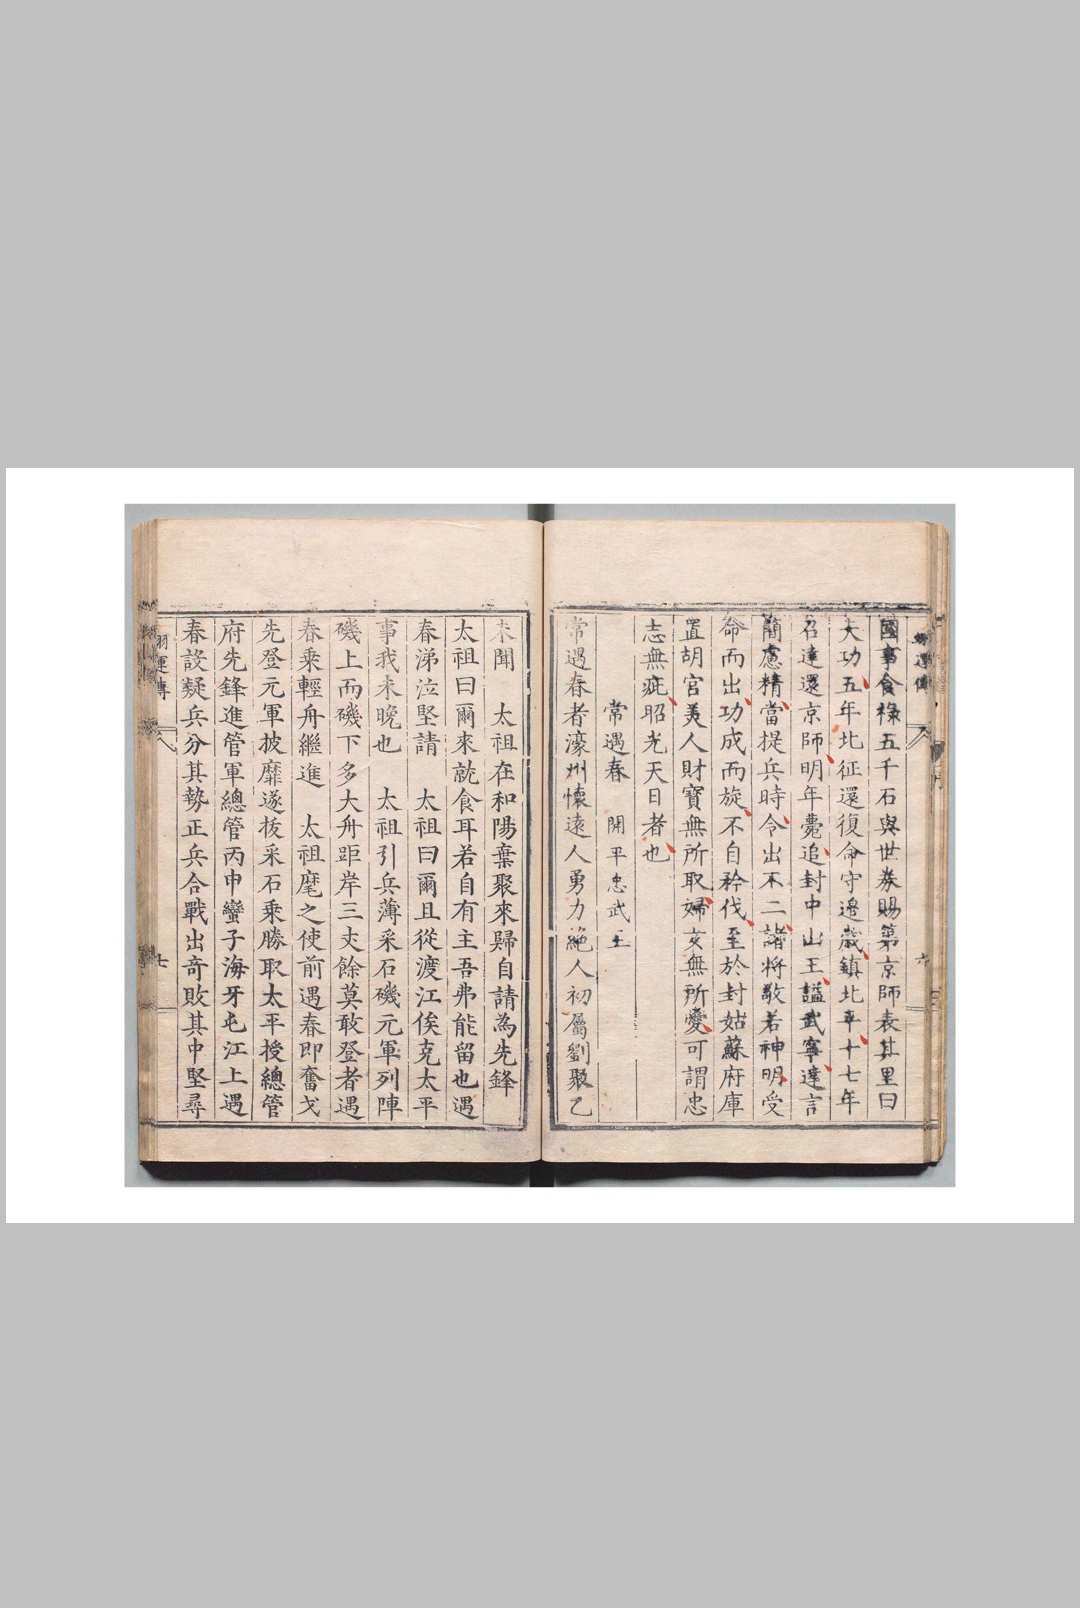 國事食祿五千石與世券賜第京師表其里曰
大功五年北征還復命守邊歲鎮北平十七年
召達還京師明年薨追封中山王謚武寧達言
簡慮精當提兵時令出不二諸將敬若神明受
命而出功成而旋不自矜伐至於封姑蘇府庫
置胡宮美人財寶無所取婦女無所愛可謂忠
志無疵昭光天日者也
常遇春 開平忠武王
常遇春者濠州懷遠人勇力絕人初屬劉聚乙
未聞 太祖在和陽棄聚來歸自請為先鋒
太祖曰爾來就食耳若自有主吾弗能留也遇
春涕泣堅請 太祖曰爾且從渡江俟克太平
事我未晚也 太祖引兵薄采石磯元軍列陣
磯上而磯下多大舟距岸三丈餘莫敢登者遇
春乘輕舟繼進 太祖麾之使前遇春即奮戈
先登元軍披靡遂拔采石乘勝取太平授總管
府先鋒進管軍總管丙申蠻子海牙屯江上遇
春設疑兵分其勢正兵合戰出奇敗其中堅尋
運傳
七